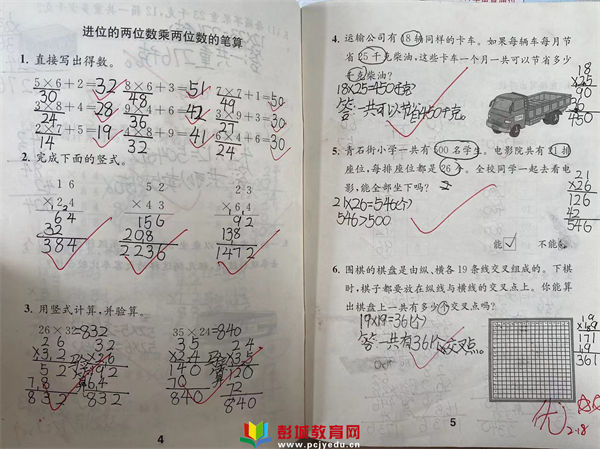 进位的两位数乘两位数的笔算
1. 直接写出得数。
5×6+2=32 8×6+3=51 7×7+1=50
30 48 49
3×8+4=28 9×4+6=42 3×9+3=30
24 36 27
2×7+5=19 4×8+9=41 6×4+6=30
32 24
2. 完成下面的竖式。
16 52 23
×24 ×43 ×64
64 156 92
32 208 138
384 2236 1472
3. 用竖式计算,并验算。
26×32=832 35×24=840
26 32 35 24
×32 ×26 ×24 ×35
52 192 140 120
78 64 70 72
832 832 840 840
4
4. 运输公司有18辆同样的卡车。如果每辆车每月节
省25千克柴油,这些卡车一个月一共可以节省多少
千克柴油?
18×25=450千克
答:一共可以节省450千克。
18
×25
90
36
450
5. 青石街小学一共有500名学生。电影院共有21排
座位,每排座位都是26个。全校同学一起去看电
影,能全部坐下吗?
21×26=546(个)
546>500
21
×26
126
42
546
能 √ 不能
6. 围棋的棋盘是由纵、横各19条线交叉组成的。下棋
时,棋子都要放在纵线与横线的交叉点上。你能算
出棋盘上一共有多少个交叉点吗?
19×19=361(个)
答:一共有361个交叉点。
19
×19
171
19
361
优
2.18
5
彭城教育网
www.pcjyedu.cn